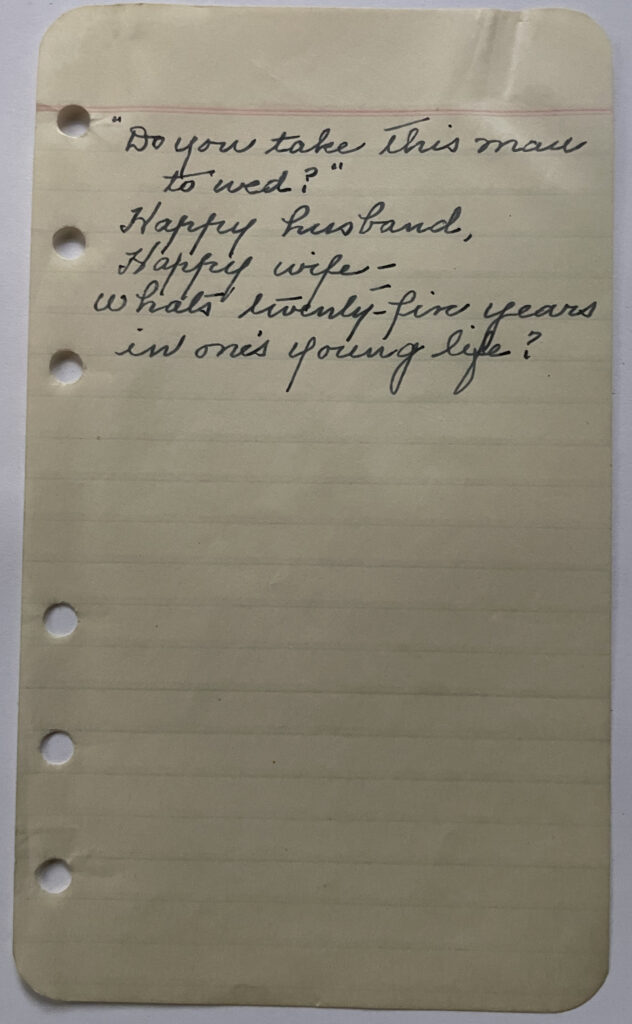 "Do you take this man
to wed?"
Happy husband,
Happy wife –
Whats' twenty-five years
in one's young life?